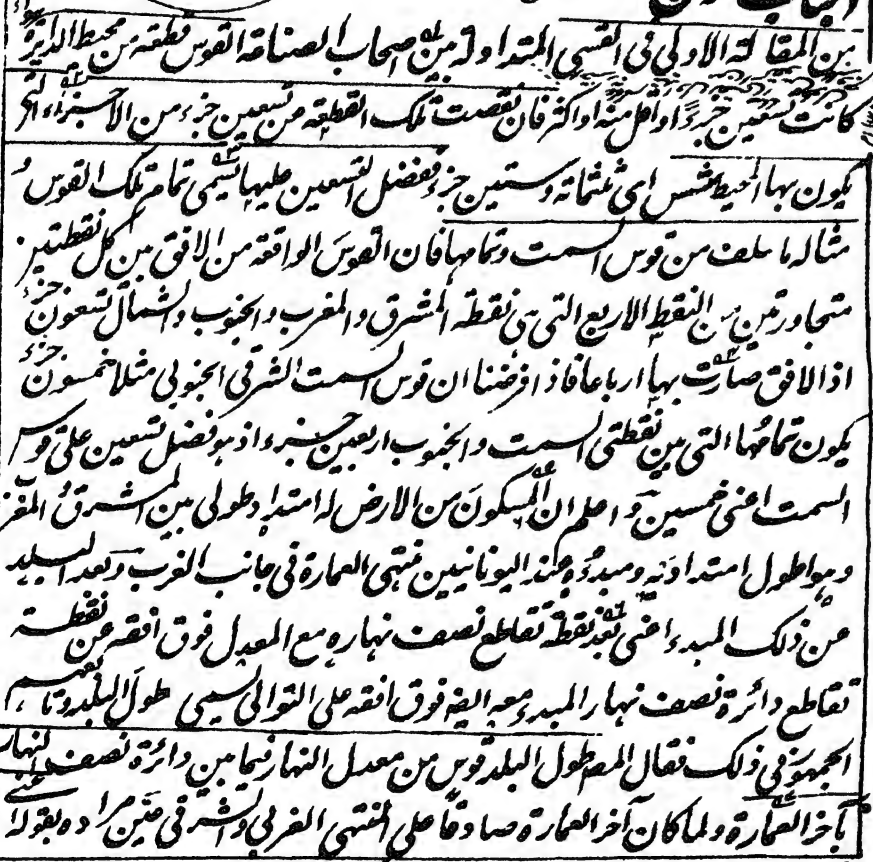 من المقالة الاولى فى القسى المتداولة بين اصحاب الصناعة القوس قطعة من محيط الدايرة
كانت تسعين جزءً او اقل منه او اكثر فان نقصت تلك القطعة من تسعين جزء من الاجزاء التى
يكون بها المحيط شس اى ثلثمائة وستين جزء ففضل التسعين عليها تسمى تمام تلك القوس
مثاله ما سلف من قوس السمت وتمامها فان القوسَ الواقعة من الافق بين كل نقطتين
متجاورتين من النقط الاربع التى هى نقطة المشرق والمغرب والجنوب والشمال تسعون جزء
اذ الافق صارت بها ارباعا فاذا فرضنا ان قوس السمت الشرقى الجنوبى مثلا خمسون جزء
يكون تمامُها التى بين نقطتى السمت والجنوب اربعين جزء اذ هو فضل تسعين على قوس
السمت اعنى خمسين واعلم ان المسكونَ من الارض له امتداد طولى بين المشرق والمغرب
وهو اطول امتداديه ومبدءه عند اليونانيين منتهى العمارة فى جانب الغرب وبعد البلد
عن ذلك المبدء اعنى بُعد نقطة تقاطع نصف نهاره مع المعدل فوق افقه عن نقطة
تقاطع دائرة نصف نهار المبدء معه ايضا فوق افقه على التوالى يسمى طولَ البلد وتابعهم
الجمهور فى ذلك فقال المصـ طول البلد قوس من معدل النهار فيما بين دائرة نصف النهار
بآخر العمارة ولما كان آخر العمارة صادقا على المنتهى الغربى والشرقى عيّن مراده بقوله اعنى